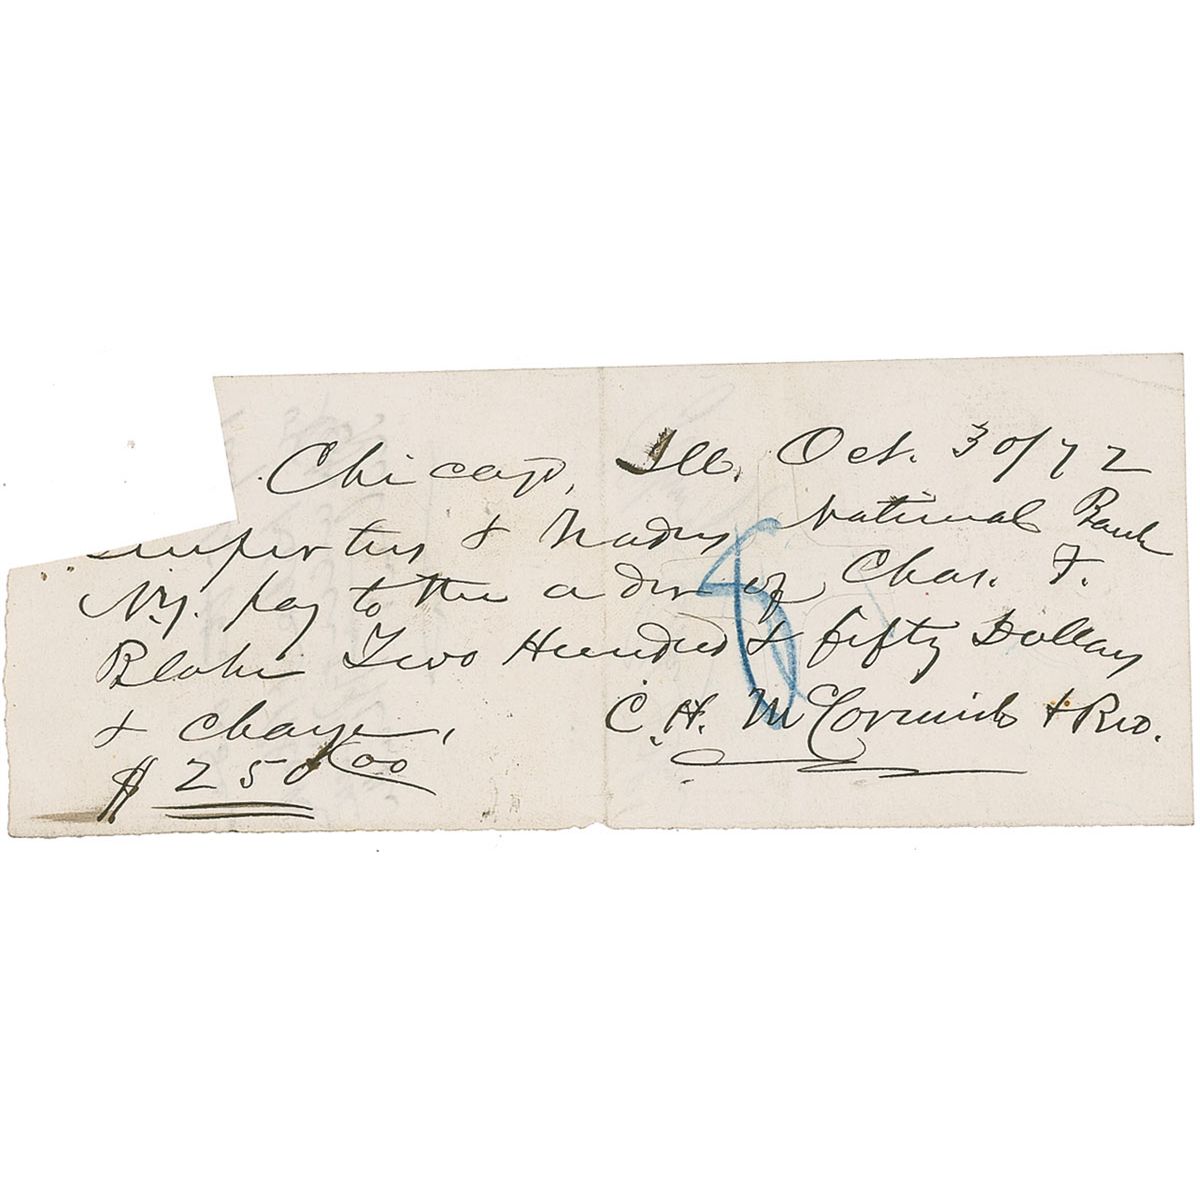 Chicago, Ill. Oct. 30/72
Importers & Traders National Bank
N.Y. pay to the order of Chas. F.
Blake Two Hundred & fifty Dollars
& charge,
C. H. McCormick & Bro.
$ 250 00